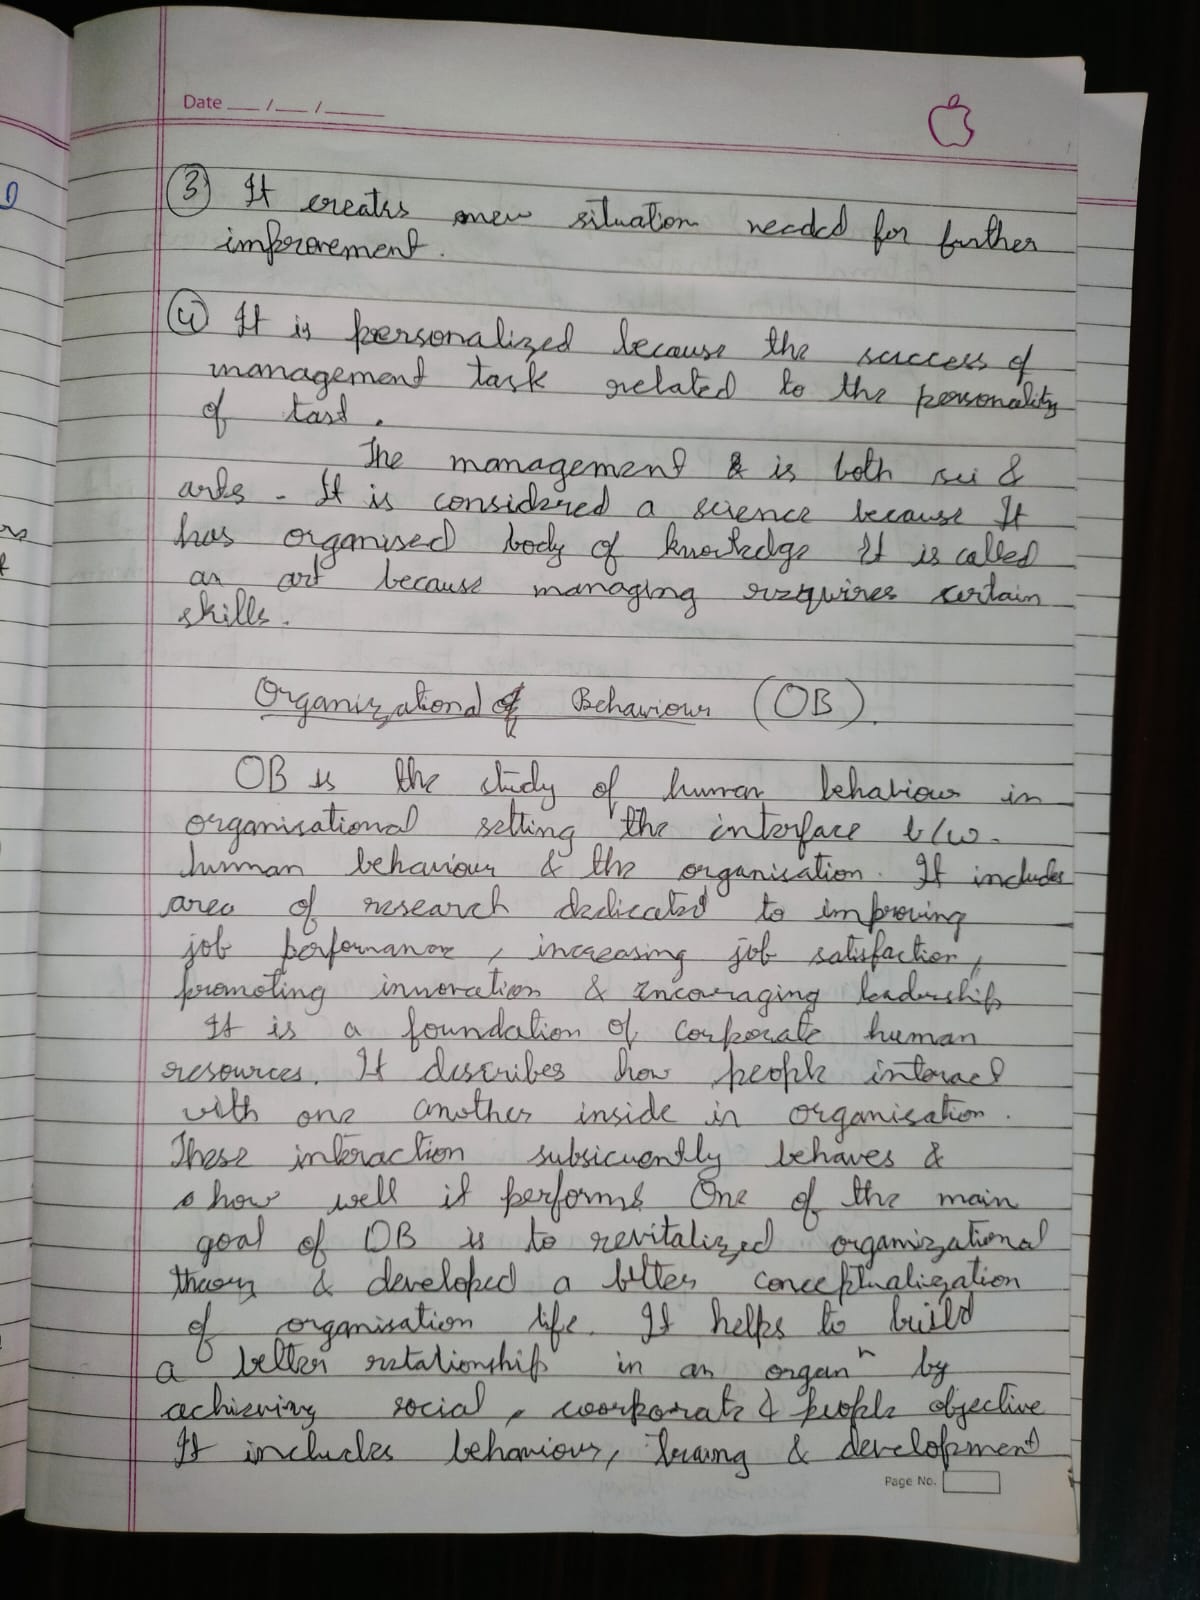 Date __/__/____
③ It creates new situation needed for further
improvement.
④ It is personalized because the success of
management task related to the personality
of
The management & is both sci &
arts - It is considered a science because It
has organised body of knowledge It is called
an art because managing requires certain
skills.
Organizational of Behaviour (OB).
OB is the study of human behaviour in
organisational setting the interface b/w.
human behaviour & the organisation. It includes
area of research dedicated to improving
job performance, increasing job satisfaction,
promoting innovation & encouraging leadership
It is a foundation of corporate human
resources. It describes how people interact
with one another inside in organisation.
These interaction subsicuently behaves &
show well it performs One of the main
goal of OB is to revitalized organizational
theory & developed a better conceptualization
of organisation life. It helps to build
a better relationship in an organⁿ by
achieving social, coorporate & people objective
It includes behaviour, & development
Page No.